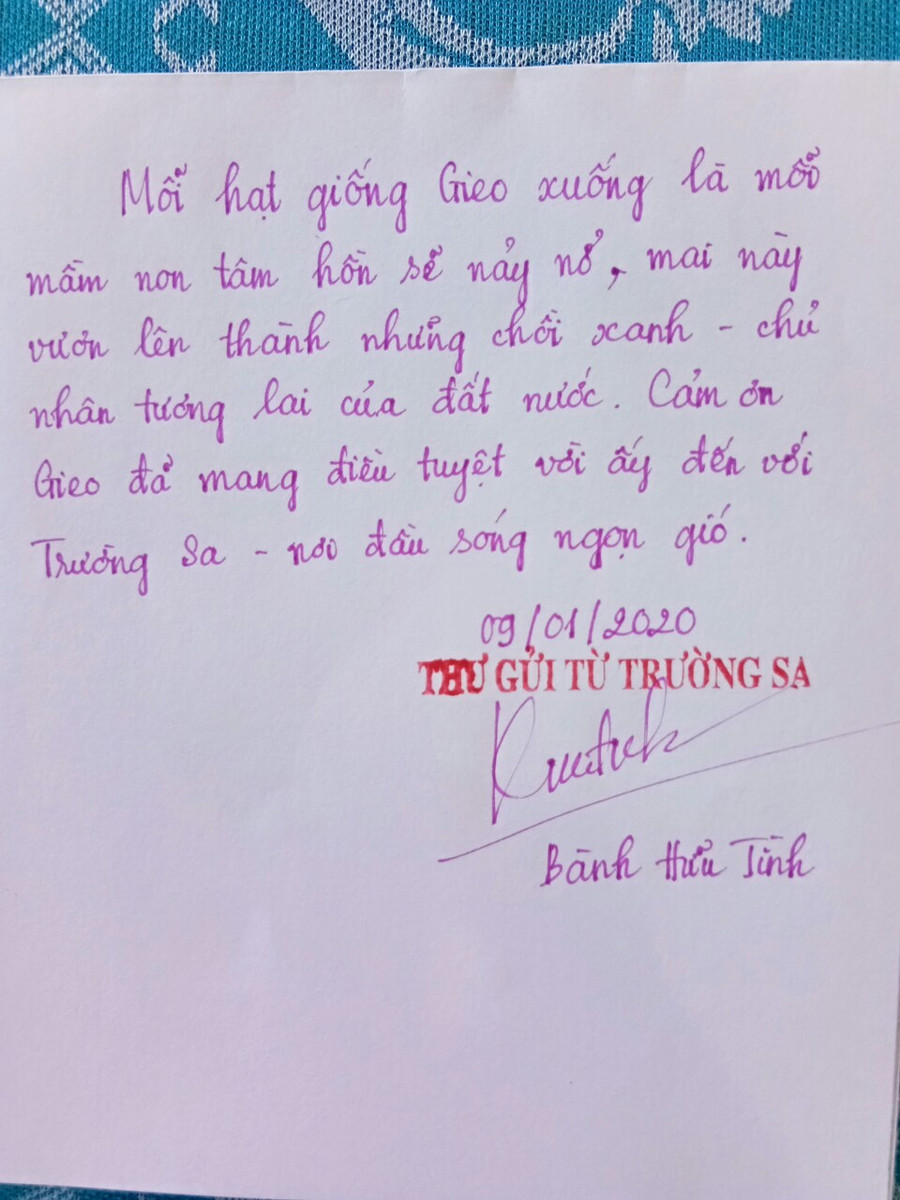 Mỗi hạt giống Gieo xuống là mỗi
mầm non tâm hồn sẽ nảy nở, mai này
vươn lên thành những chồi xanh - chủ
nhân tương lai của đất nước. Cảm ơn
Gieo đã mang điều tuyệt vời ấy đến với
Trường Sa - nơi đầu sóng ngọn gió.
09/01/2020
THƯ GỬI TỪ TRƯỜNG SA
Bành Hữu Tình